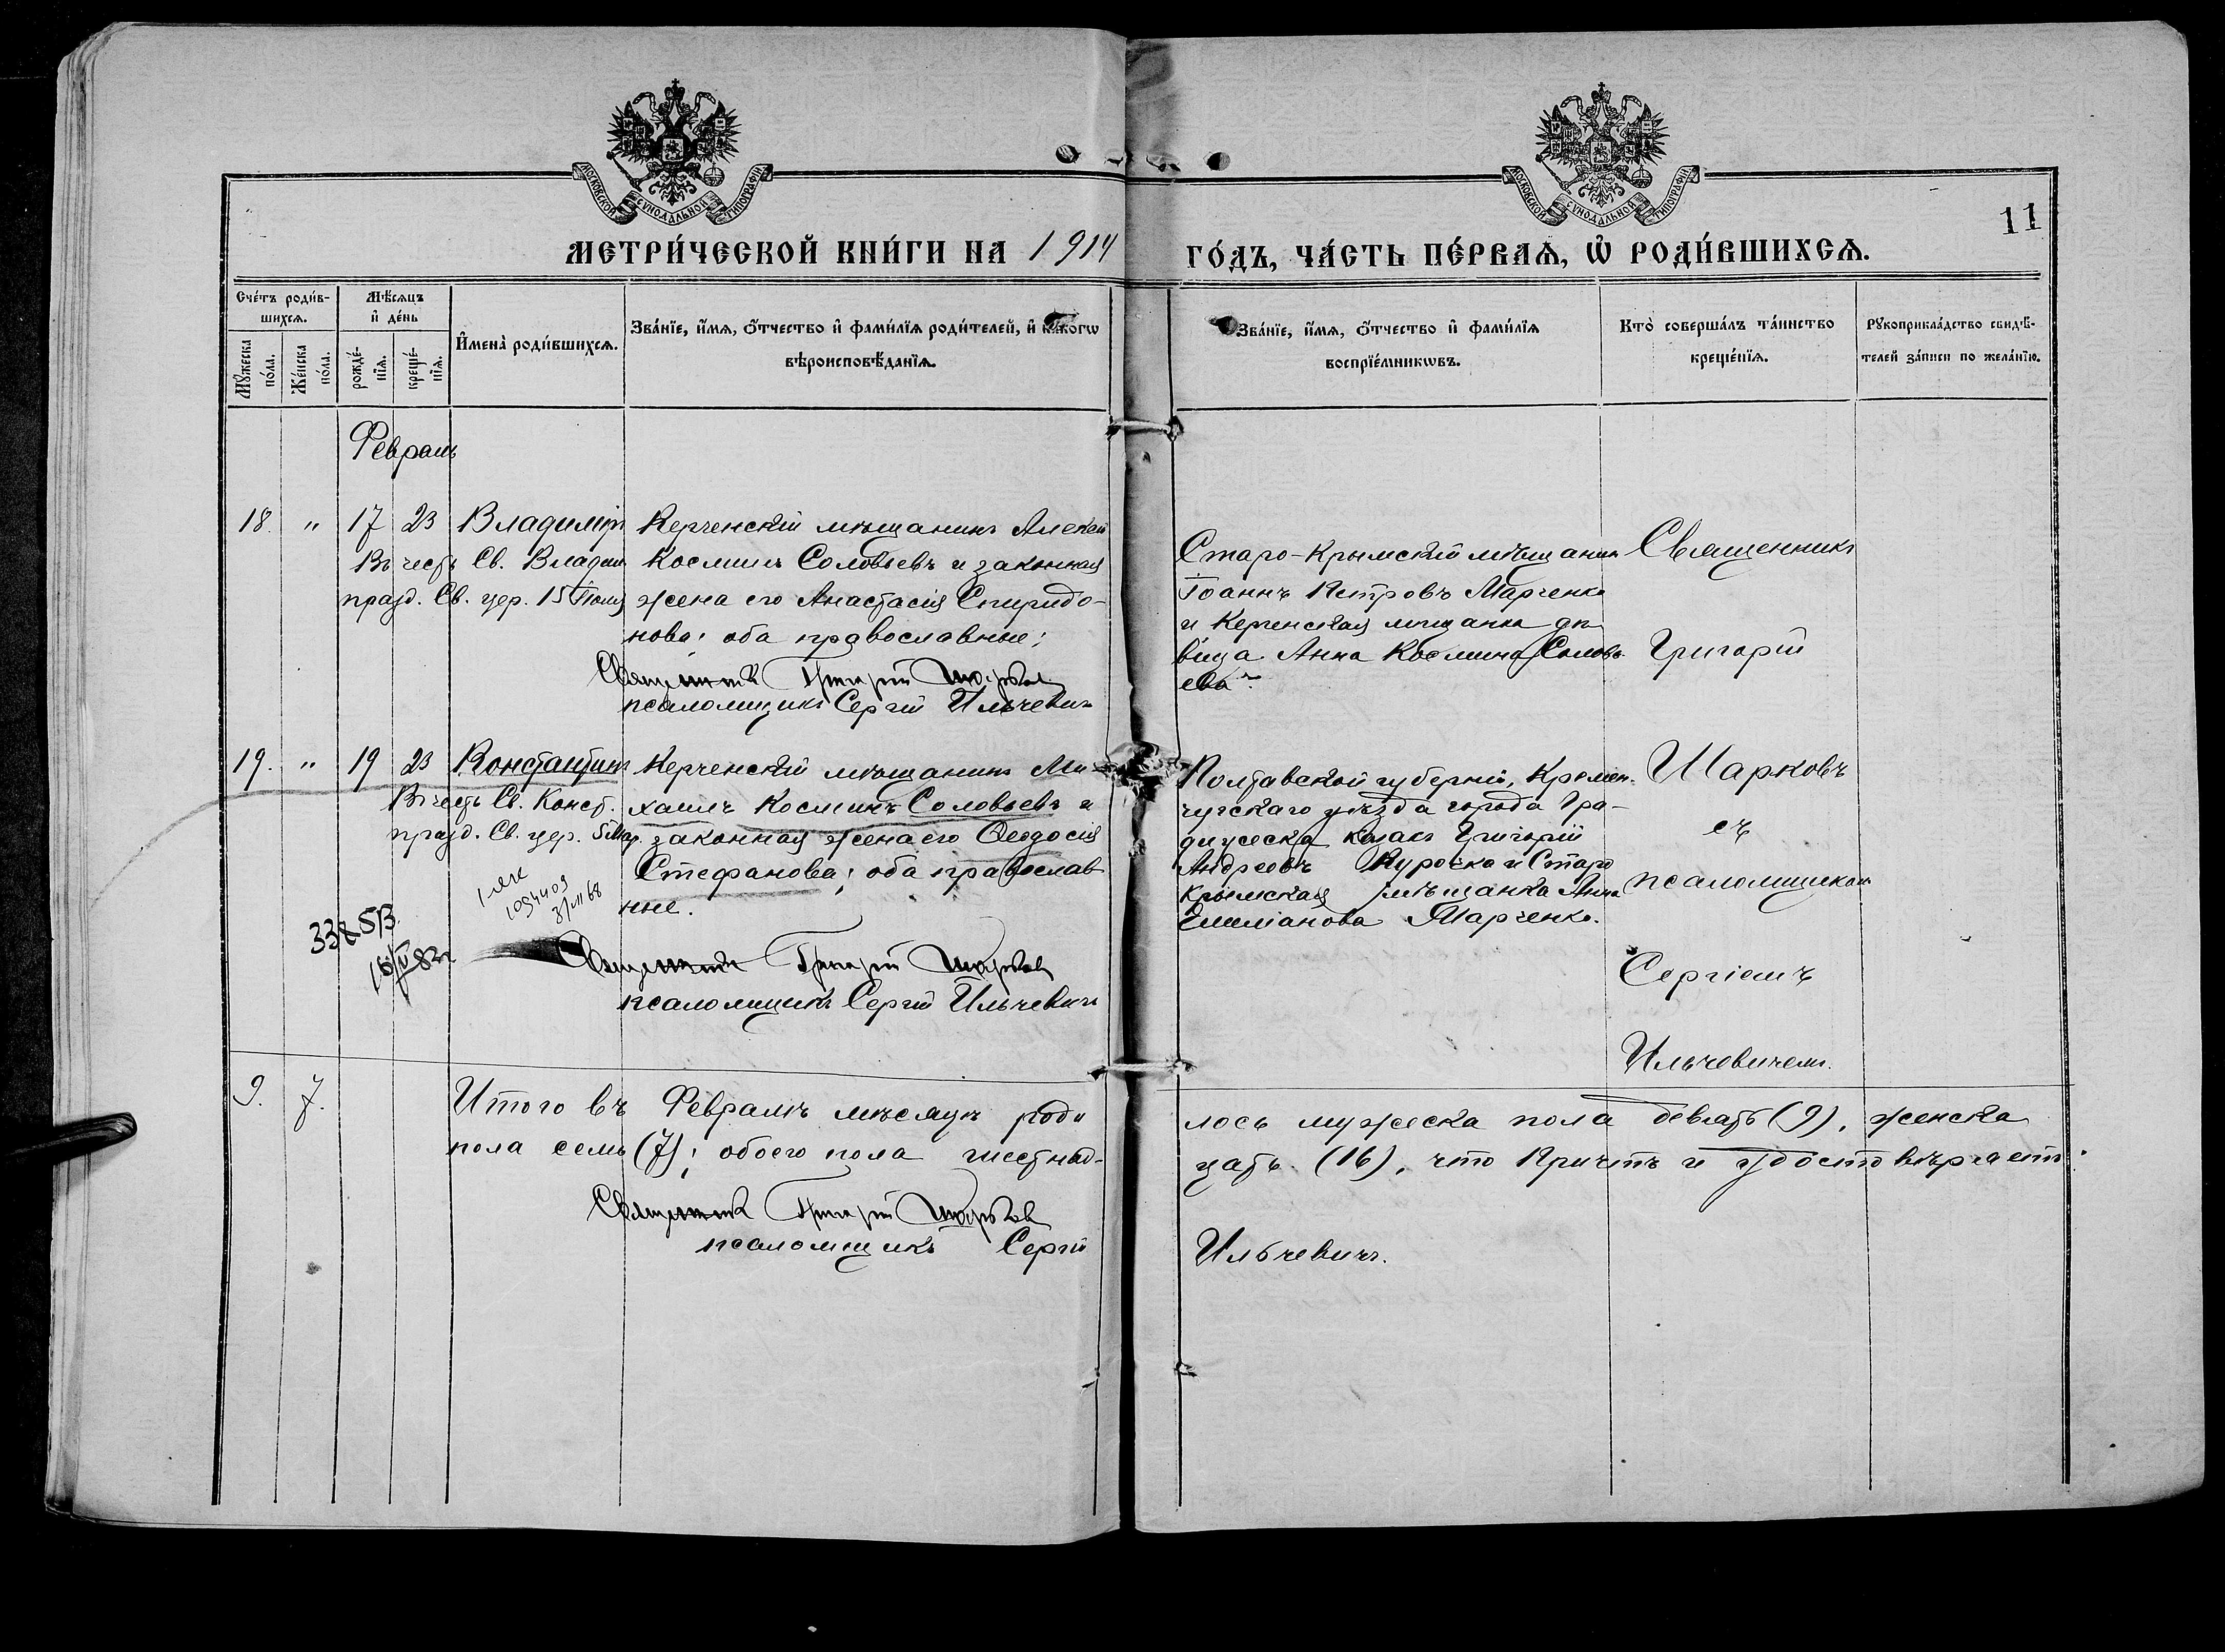 МОСКОВСКОЙ СѴНОДАЛЬНОЙ ТИПОГРАФІИ
МОСКОВСКОЙ СѴНОДАЛЬНОЙ ТИПОГРАФІИ
11
МЕТРИ́ЧЕСКОЙ КНИ́ГИ НА 1914
ГО́ДЪ, ЧА́СТЬ ПЕ́РВАѦ, Ѡ РОДИ́ВШИХСѦ.
Сче́тъ роди́в-
шихсѧ.
Мꙋ́жеска по́ла.
Же́нска по́ла.
Мѣ́сѧцъ
и҆ де́нь
рожде́-
нїѧ.
креще́-
нїѧ.
И҆мена̀ роди́вшихсѧ.
Зва́нїе, и҆́мѧ, ѻ҆́тчество и҆ фами́лїѧ роди́телей, и҆ како́гѡ
вѣроисповѣ́данїѧ.
Зва́нїе, и҆́мѧ, ѻ҆́тчество и҆ фами́лїѧ
воспрїе́мникѡвъ.
Кто̀ соверша́лъ та́инство
креще́нїѧ.
Рꙋкоприкла́дство свидѣ́-
телей за́писи по жела́нїю.
Февраль
18. " 17 23 Владиміръ
Въ честь Св. Владим.
празд. Св. цер. 15 Іюля
Керченскій мѣщанинъ Алексѣй
Косминъ Соловьевъ и законная
жена его Анастасія Спиридо-
нова; оба православные;
Священникъ Григорій Шарковъ
псаломщикъ Сергій Ильчевичъ
Старо-Крымскій мѣщанинъ
Іоаннъ Петровъ Марченко
и Керченская мѣщанка дѣ-
вица Анна Космина Соловь-
ева.
Священникъ
Григорій
Шарковъ
съ
псаломщикомъ
Сергіемъ
Ильчевичемъ.
19. " 19 23 Константинъ
Въ честь Св. Конст.
празд. Св. цер. 5 Мар.
Керченскій мѣщанинъ Ми-
хаилъ Косминъ Соловьевъ и
законная жена его Ѳеодосія
Стефанова; оба православ-
ные.
1054409
Священникъ Григорій Шарковъ
псаломщикъ Сергій Ильчевичъ
Полтавской губерніи, Кремен-
чугскаго уѣзда города Гра-
дижеска казакъ Григорій
Андреевъ Курочка и Старо
Крымская мѣщанка Анна
Емиліанова Марченко.
9. 7.
Итого въ Февралѣ мѣсяцѣ роди
лось мужеска пола девять (9), женска
пола семь (7); обоего пола шестнад-
цать (16), что Причтъ и удостовѣряетъ.
Священникъ Григорій Шарковъ
псаломщикъ Сергій
Ильчевичъ.